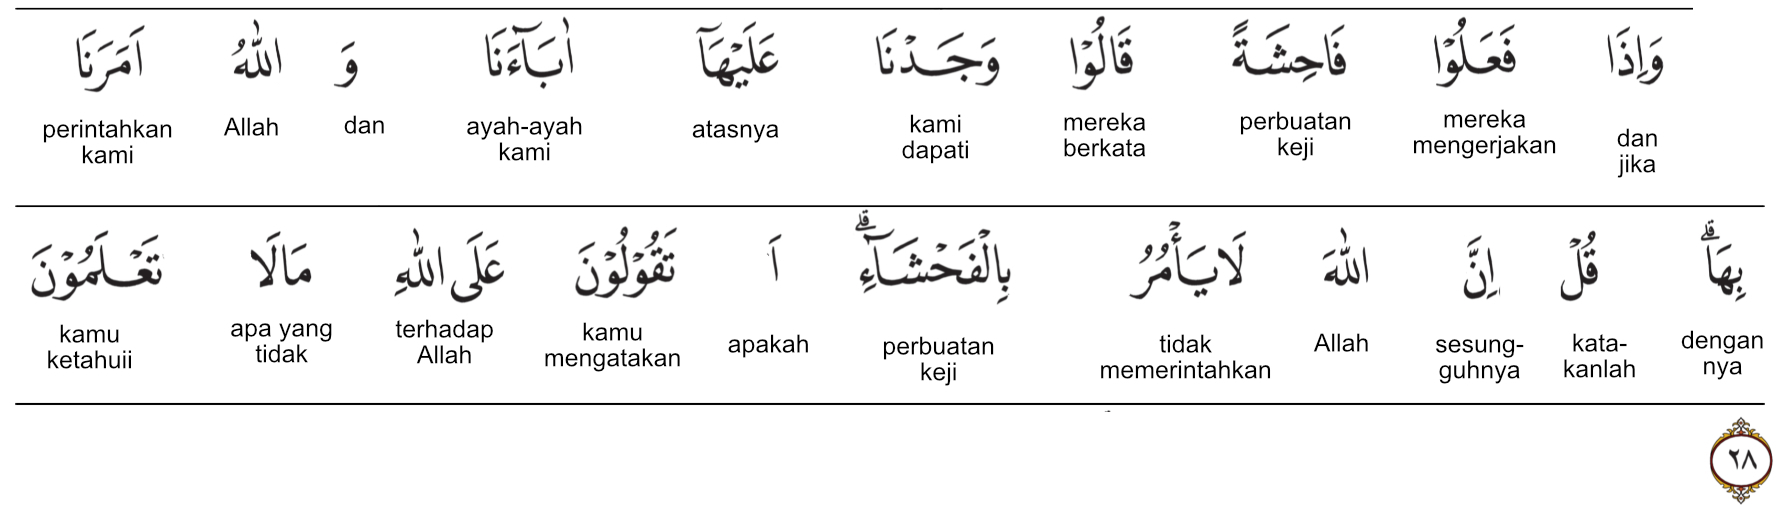 وَاِذَا فَعَلُوْا فَاحِشَةً قَالُوْا وَجَدْنَا عَلَيْهَآ اٰبَآءَنَا وَ اللّٰهُ اَمَرَنَا
perintahkan kami Allah dan ayah-ayah kami atasnya kami dapati mereka berkata perbuatan keji mereka mengerjakan dan jika
بِهَاۗ قُلْ اِنَّ اللّٰهَ لَايَأْمُرُ بِالْفَحْشَاۤءِۗ اَ تَقُوْلُوْنَ عَلَى اللّٰهِ مَالَا تَعْلَمُوْنَ
kamu ketahuii apa yang tidak terhadap Allah kamu mengatakan apakah perbuatan keji tidak memerintahkan Allah sesung-guhnya kata-kanlah dengan nya
٢٨